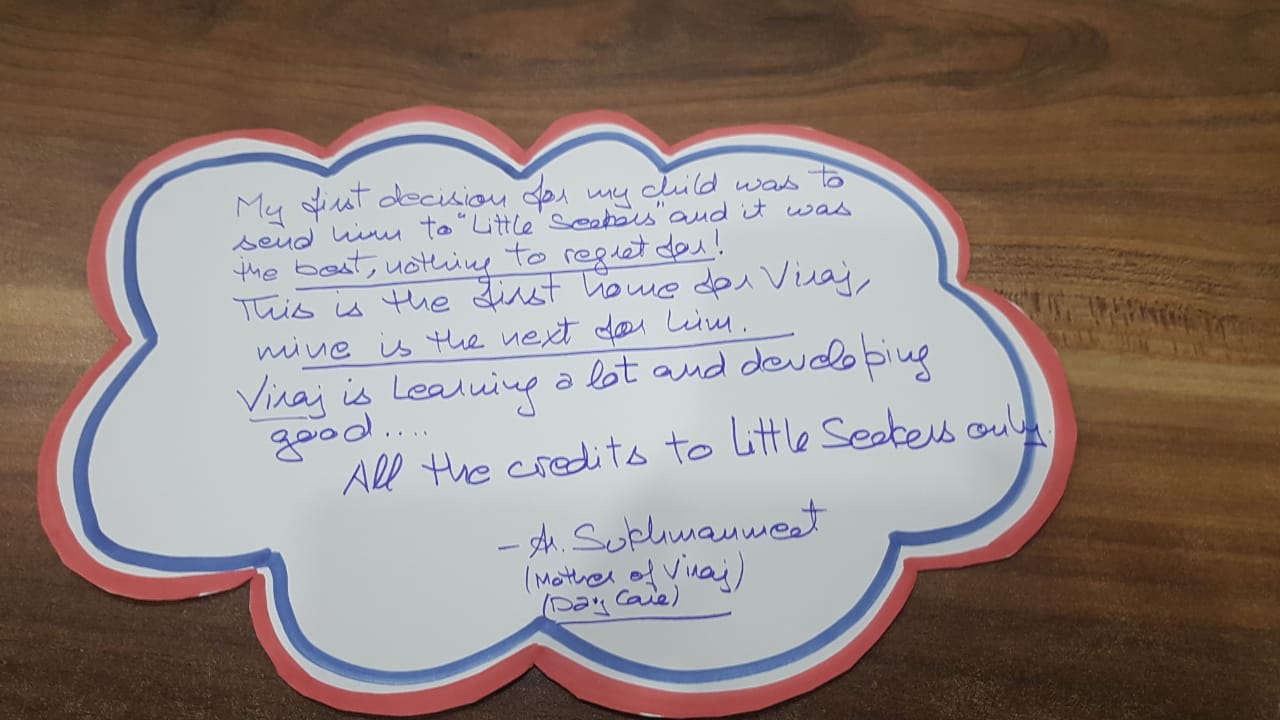 My first decision for my child was to
send him to "Little Seekers" and it was
the best, nothing to regret for!
This is the first home for Viraj,
mine is the next for him.
Viraj is Learning a lot and developing
good....
All the credits to Little Seekers only.
- Ar. Sukhmanmeet
(Mother of Viraj)
(Day Care)